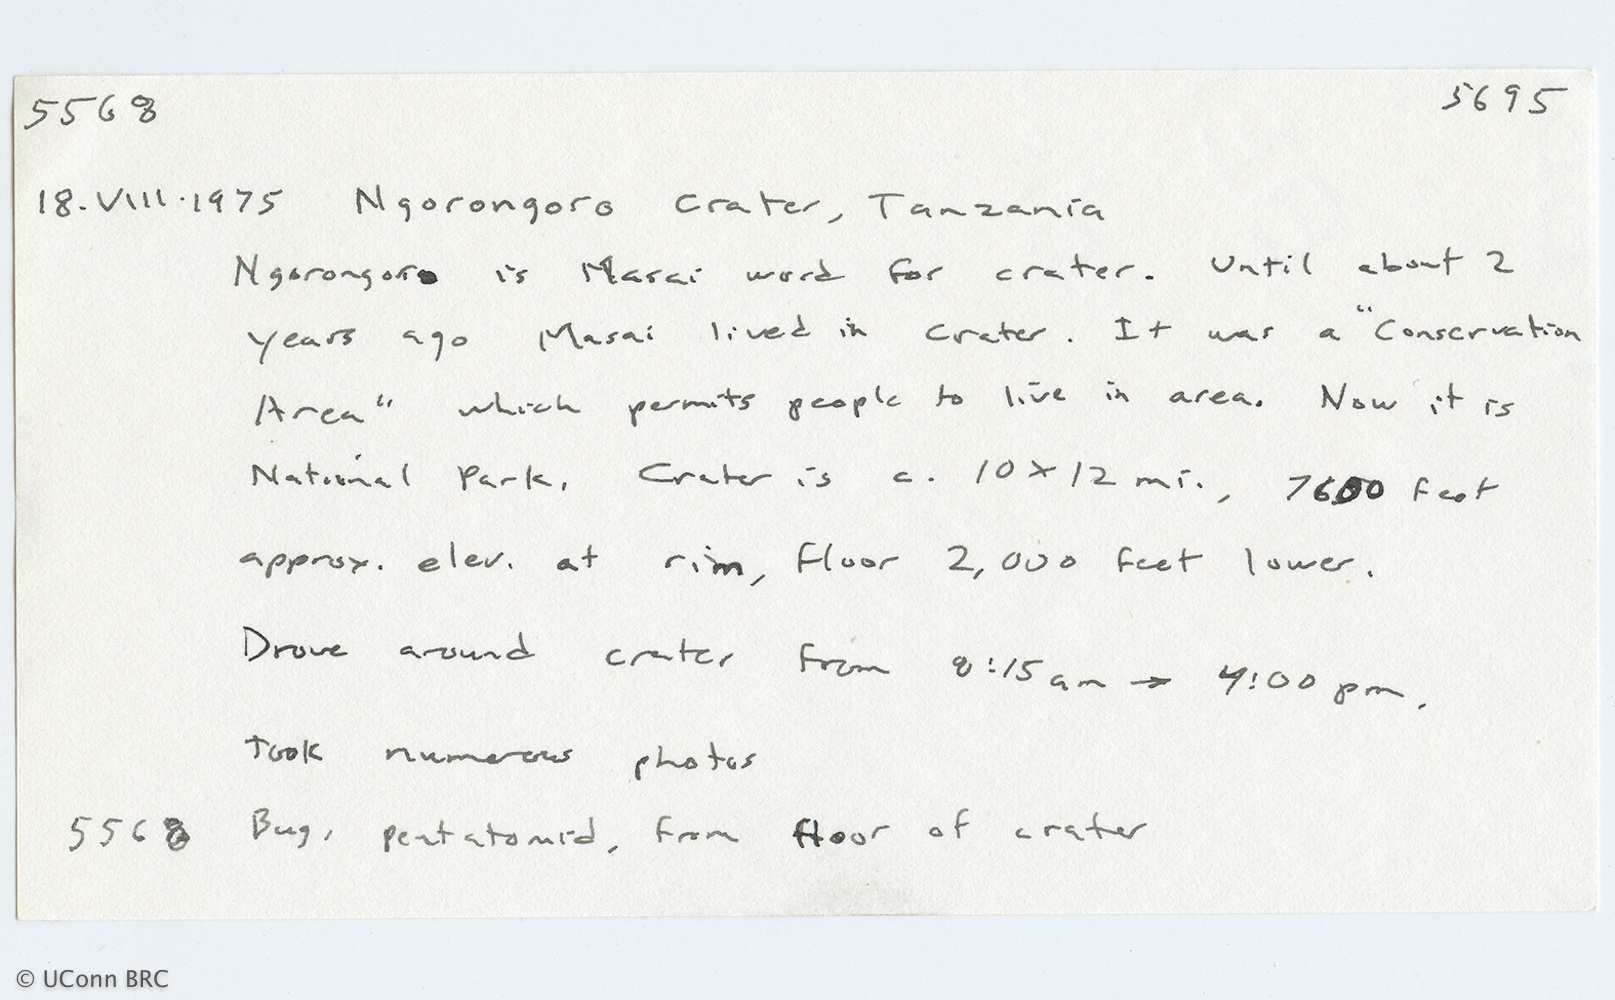 5568 5695
18.VIII.1975 Ngorongoro Crater, Tanzania
Ngorongoro is Masai word for crater. Until about 2
years ago Masai lived in crater. It was a "Conservation
Area" which permits people to live in area. Now it is
National Park. Crater is c. 10 x 12 mi., 7600 feet
approx. elev. at rim, floor 2,000 feet lower.
Drove around crater from 8:15 am → 4:00 pm.
Took numerous photos
5568 Bug, pentatomid, from floor of crater
© UConn BRC